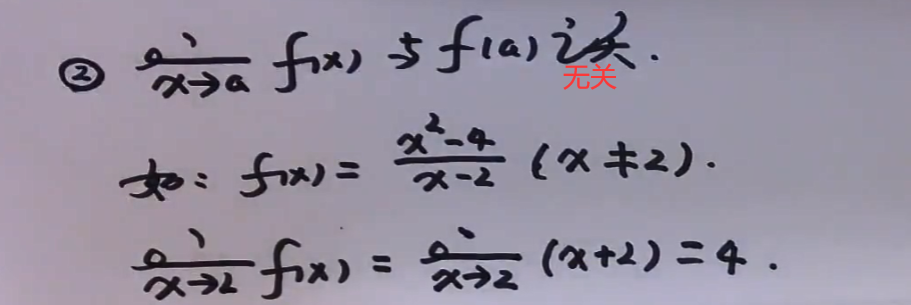 ② lim x→a f(x) 与 f(a) 无关.
无关
如: f(x) = x²-4 / x-2 (x≠2).
lim x→2 f(x) = lim x→2 (x+2) = 4.